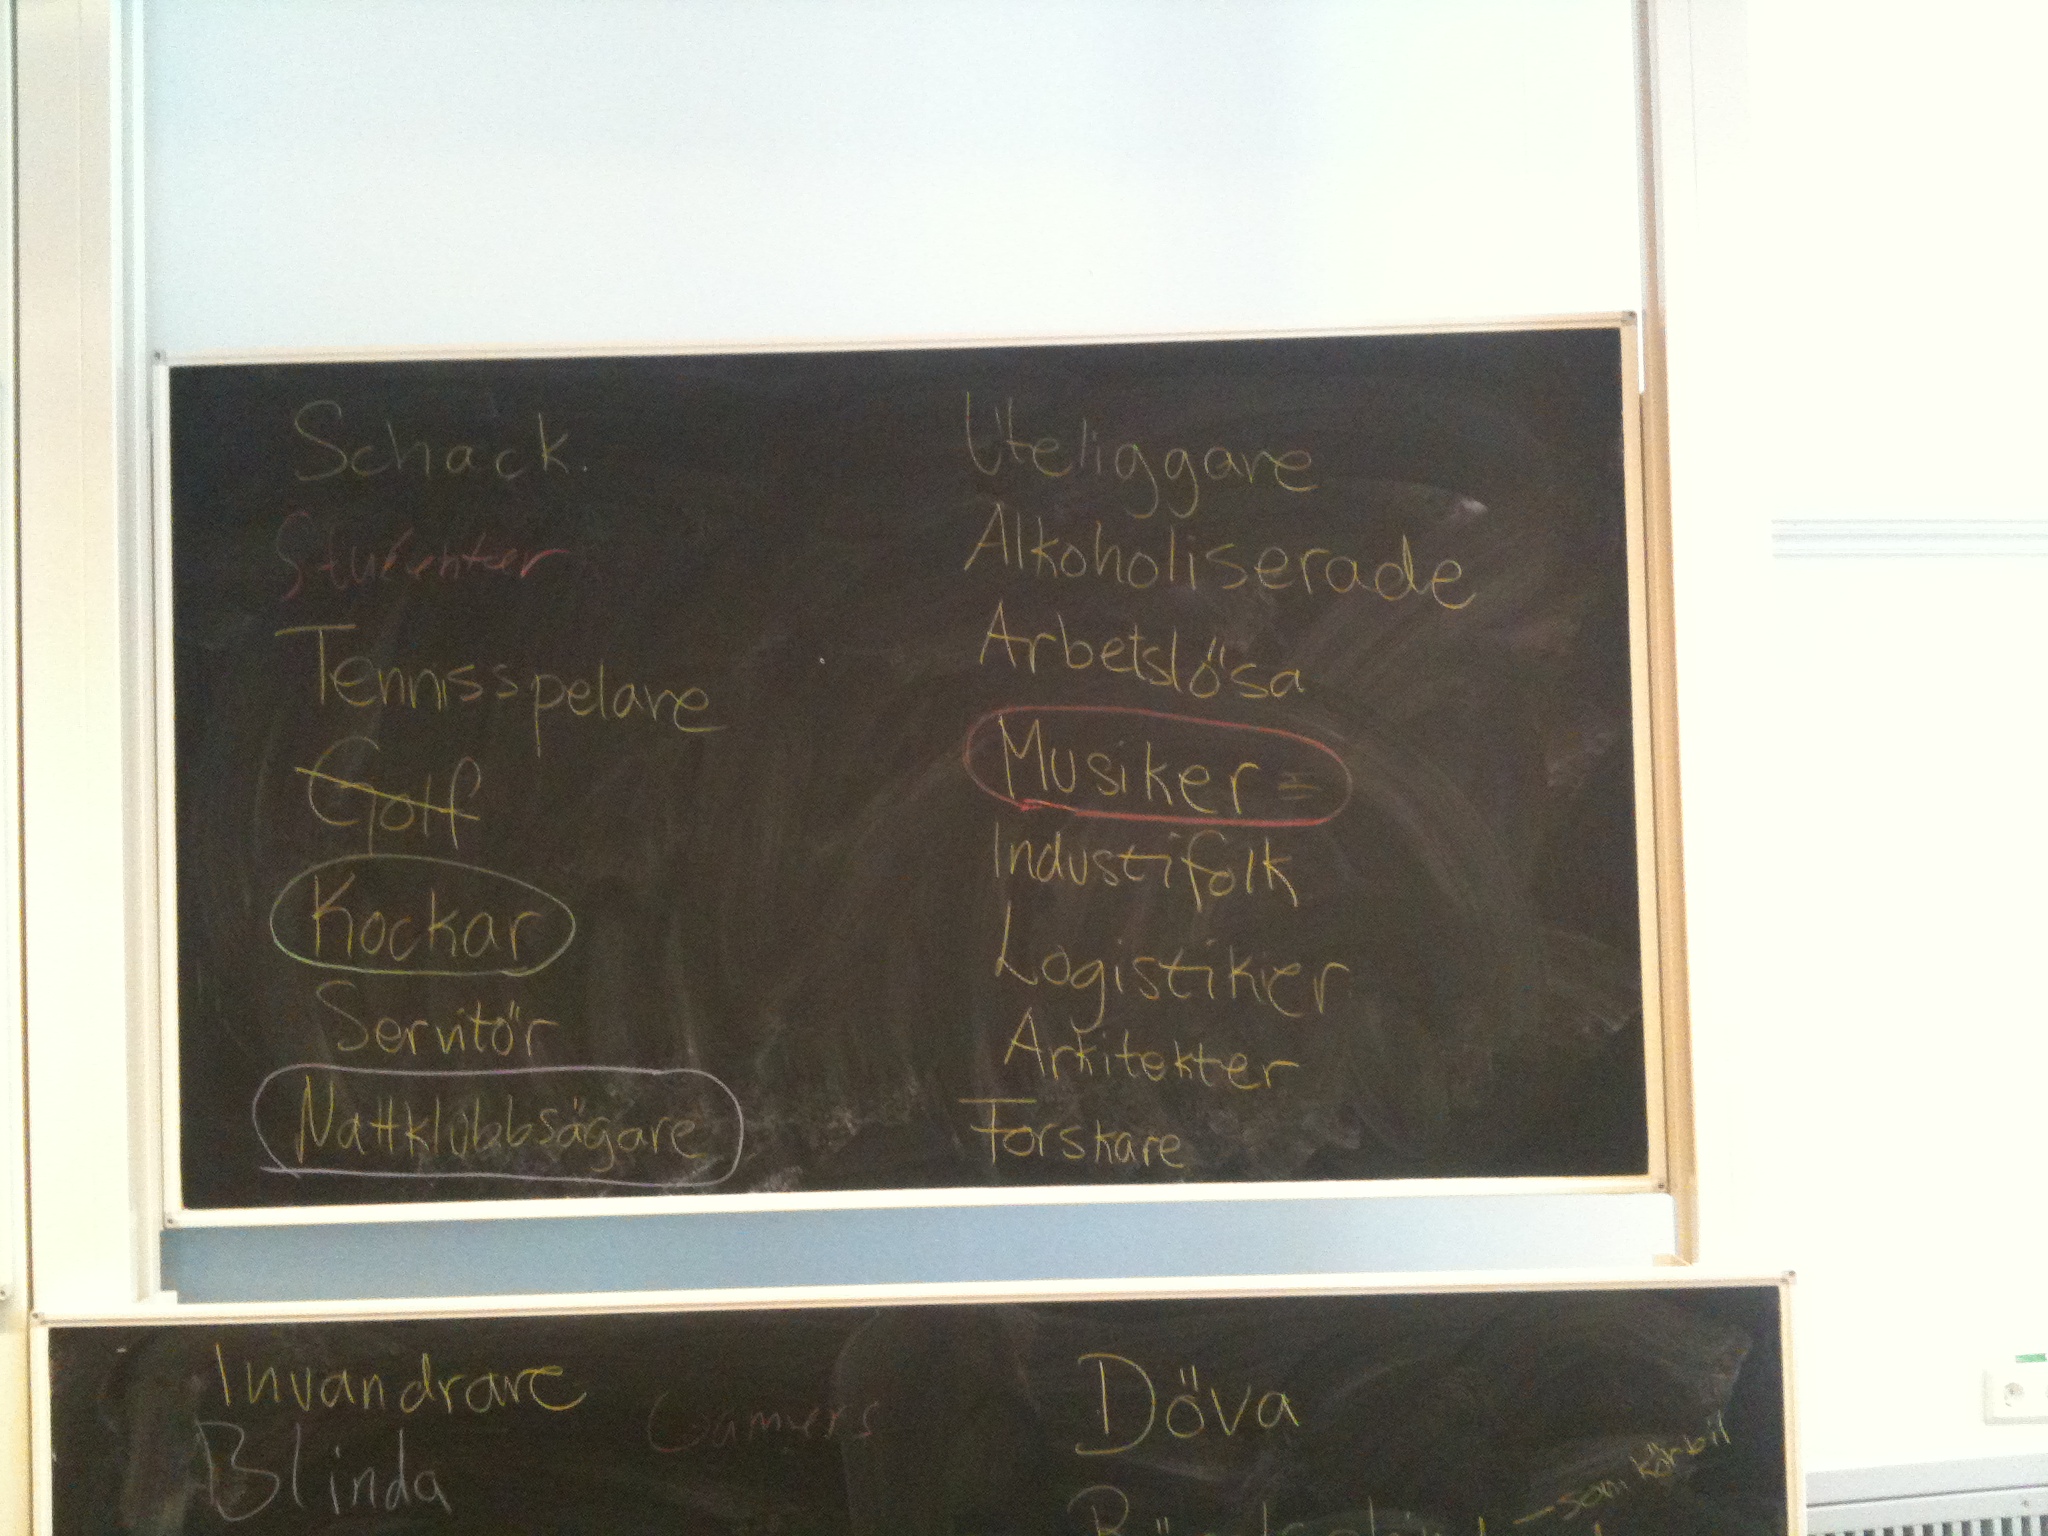 Schack.
Studenter
Tennisspelare
Golf
Kockar
Servitör
Nattklubbsägare
Uteliggare
Alkoholiserade
Arbetslösa
Musiker =
Industifolk
Logistikier
Arkitekter
Forskare
Invandrare
Gamers
Blinda
Döva
– som kör bil